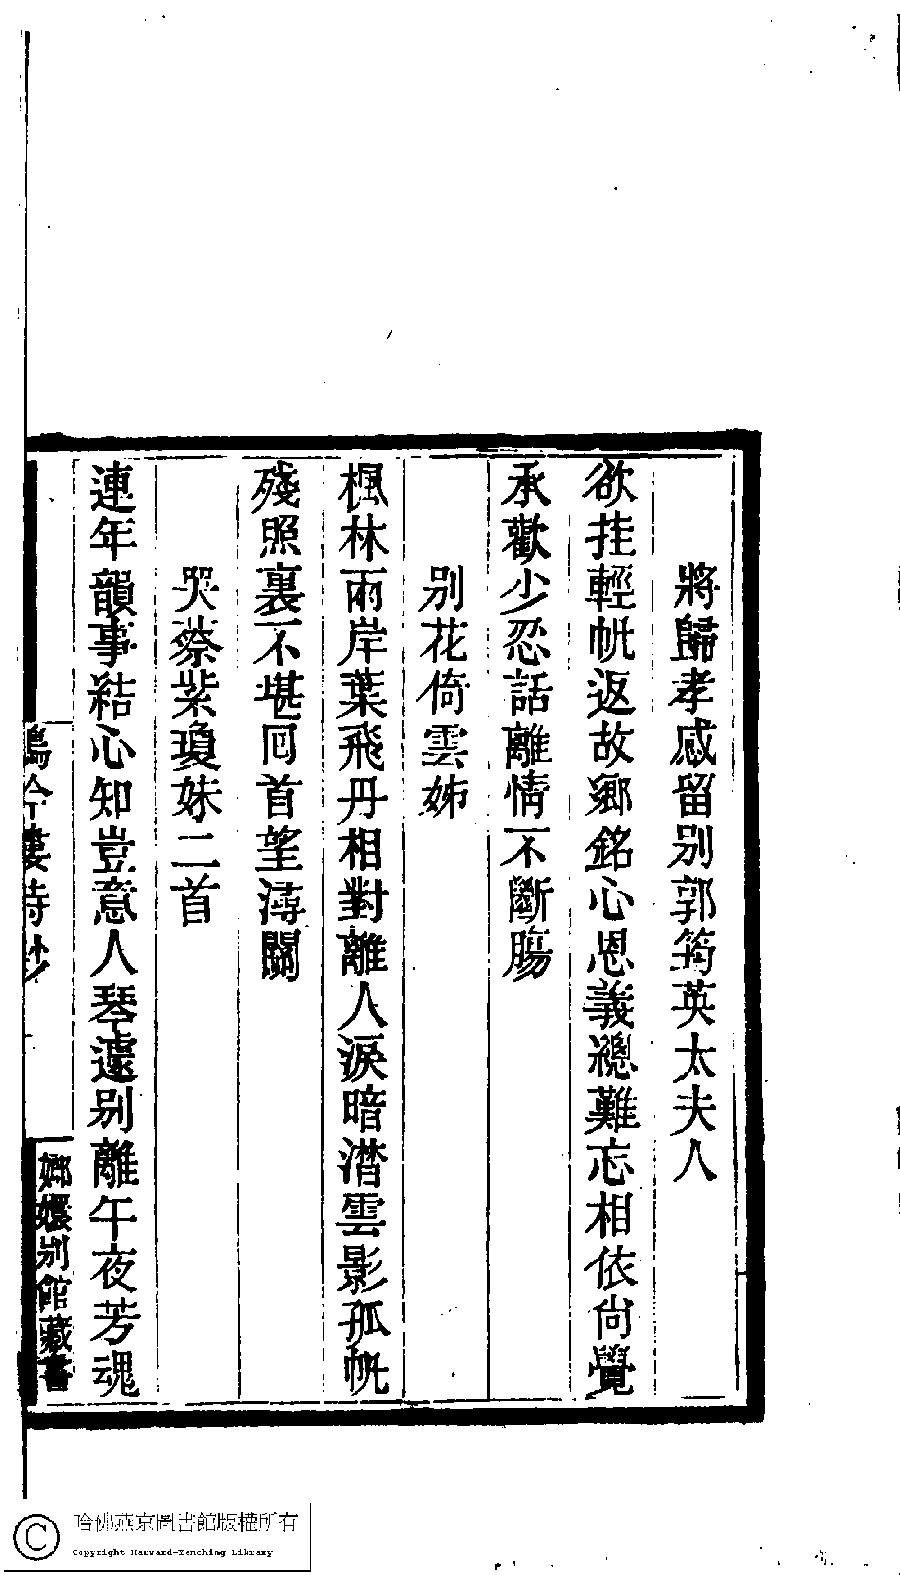 將歸孝感留别郭筠英太夫人
欲挂輕帆返故鄉銘心恩義總難忘相依尙覺
承歡少忍話離情不斷腸
别花倚雲姊
楓林兩岸葉飛丹相對離人淚暗潸雲影孤帆
殘照裏不堪回首望潯關
哭蔡紫瓊妹二首
連年韻事結心知豈意人琴遽别離午夜芳魂
吟樓詩鈔
嫏嬛别館藏書
哈佛燕京圖書館版權所有
Copyright Harvard-Yenching Library